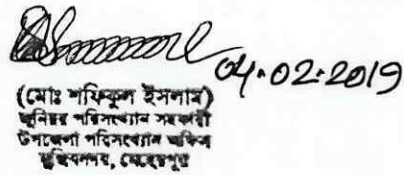 04.02.2019
(মোঃ শফিকুল ইসলাম)
জুনিয়র পরিসংখ্যান সহকারী
উপজেলা পরিসংখ্যান অফিস
মুজিবনগর, মেহেরপুর